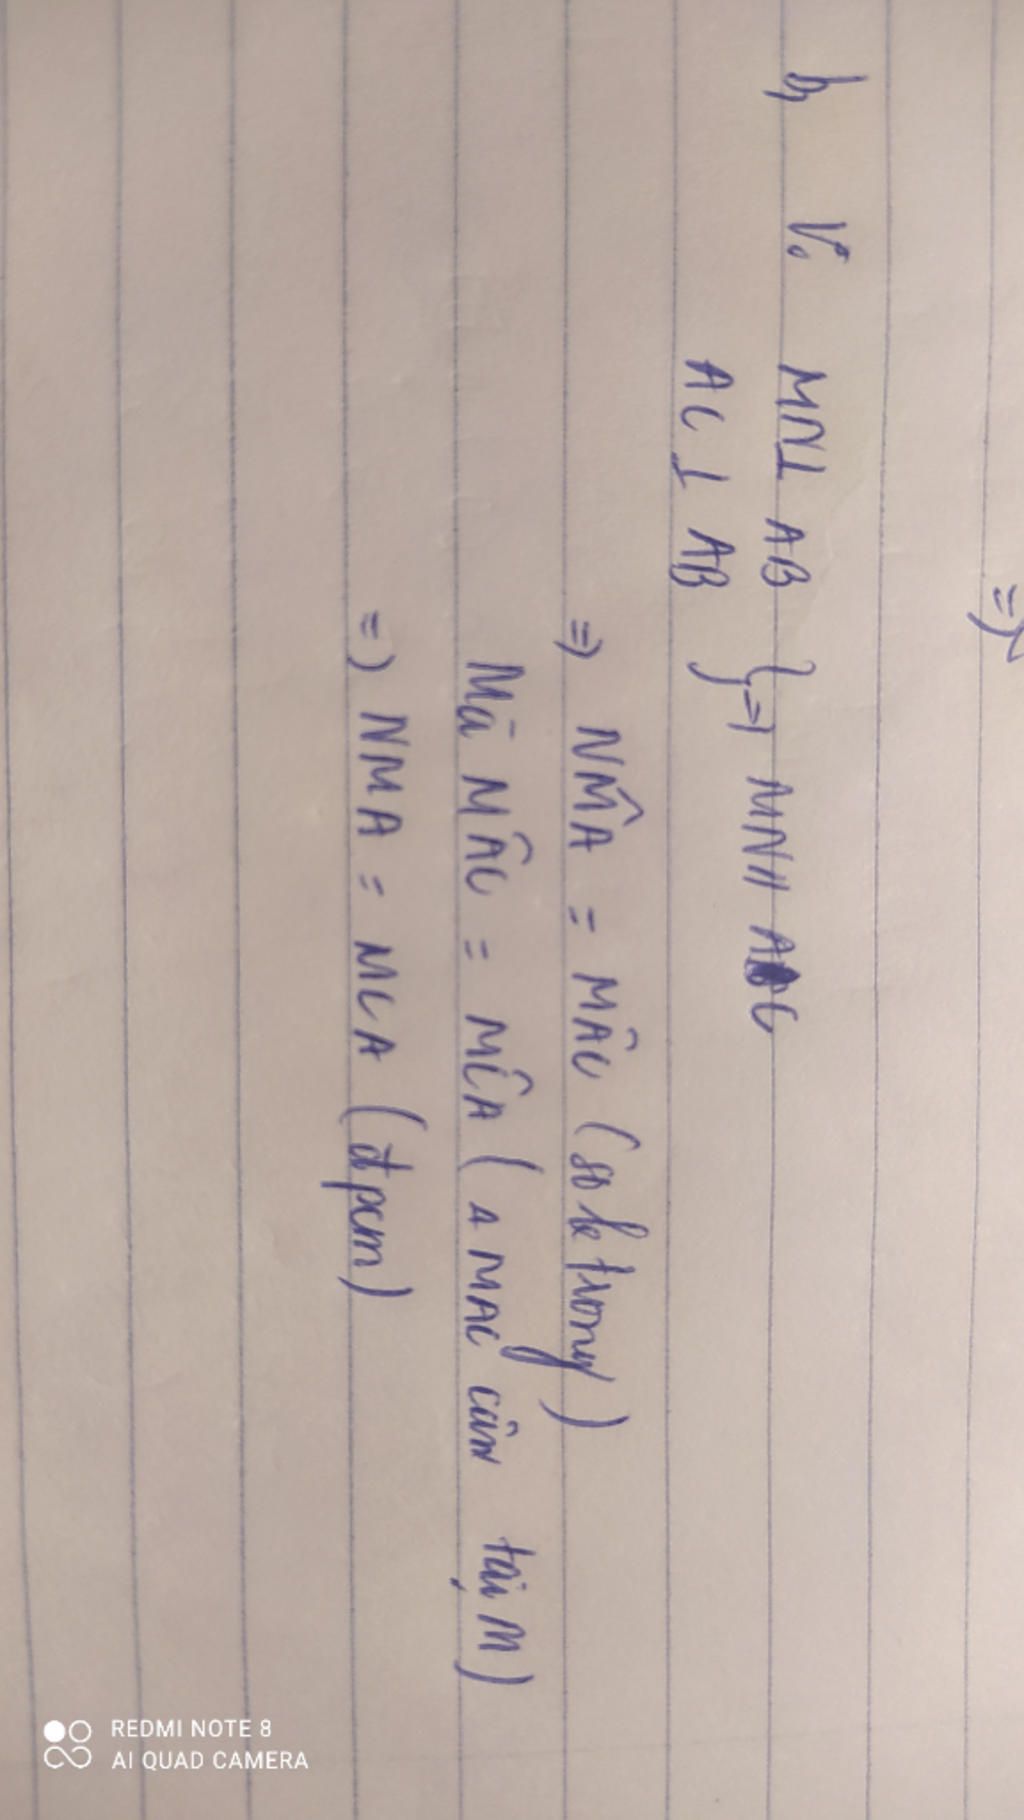 =>
b, Vì MN⊥ AB } => MN// AC
AC ⊥ AB }
=> NM̂A = MÂC (so le trong)
Mà MÂC = MĈA (Δ MAC cân tại M)
=> NMA = MCA (đpcm)
REDMI NOTE 8
AI QUAD CAMERA